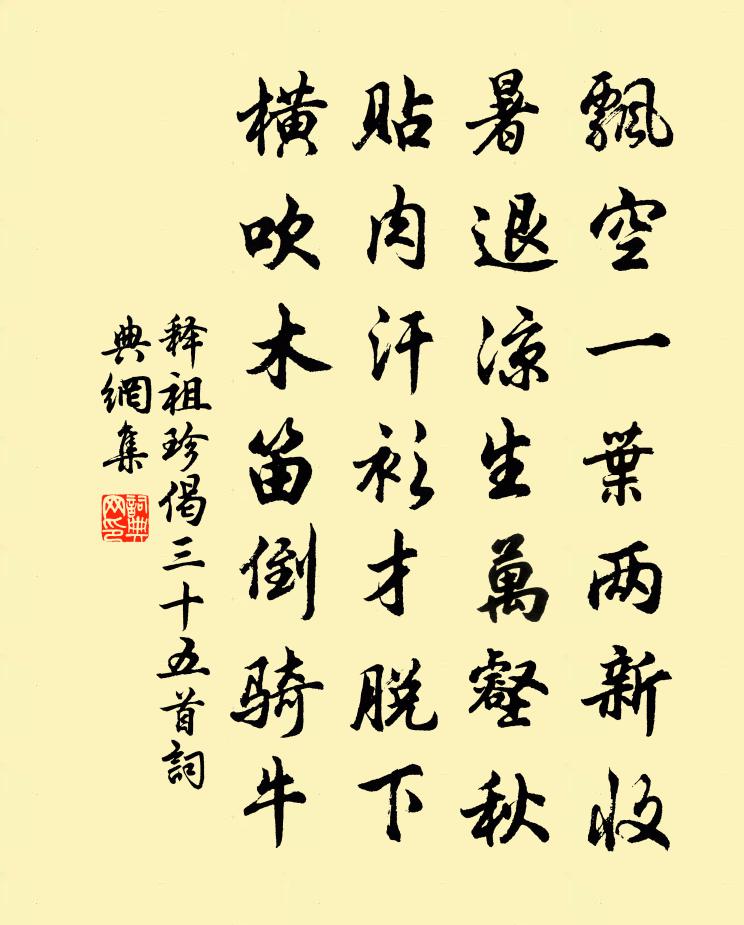 飄空一葉两新收
暑退凉生萬壑秋
貼肉汗衫才脫下
橫吹木笛倒騎牛
释祖珍偈三十五首詞
典網集
詞典網印